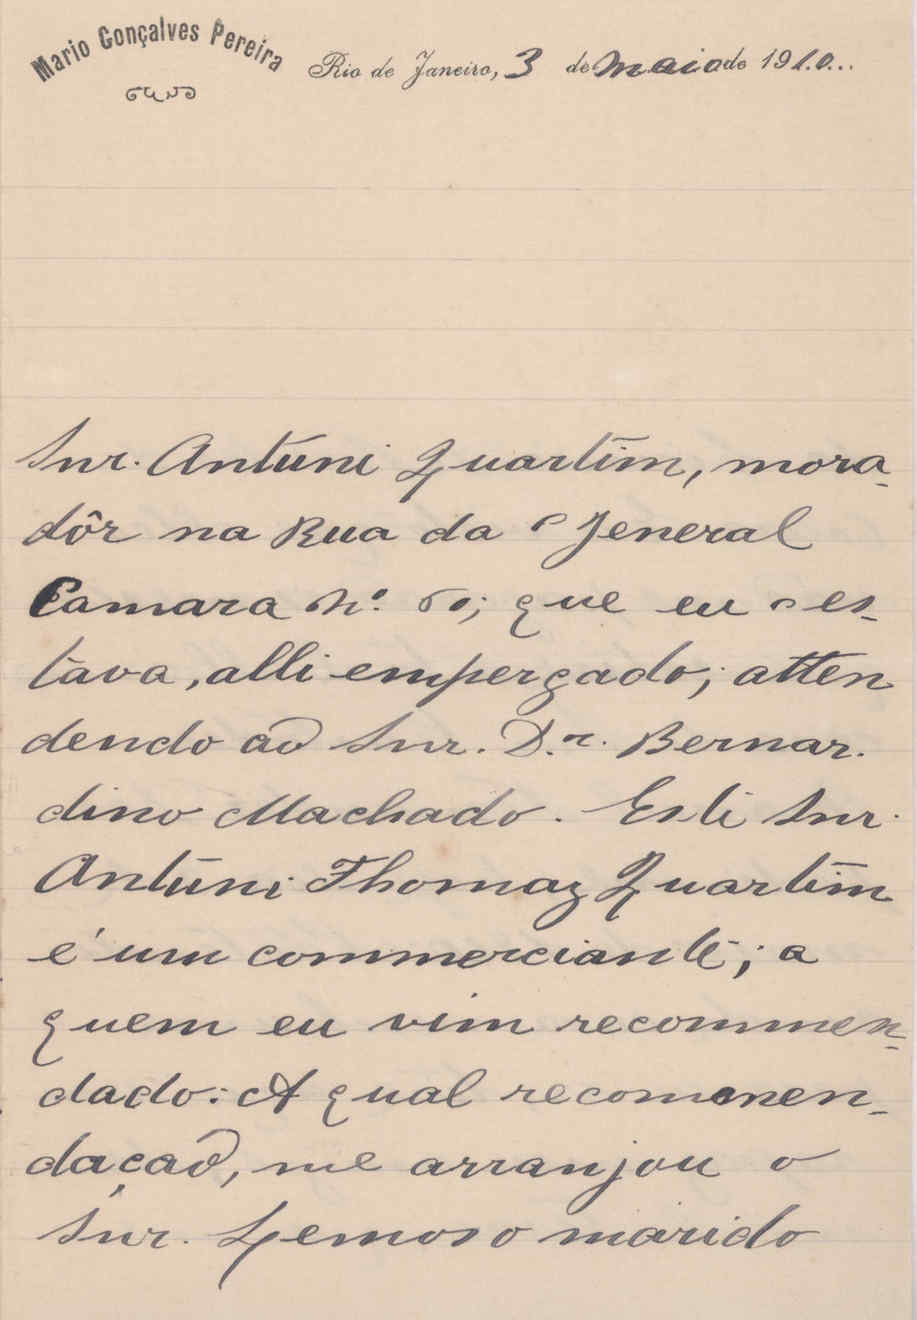 Mario Gonçalves Pereira
Rio de Janeiro, 3 de maio de 1910...
Snr. Antúni Quartim, mora-
dôr na Rua da Jeneral
Camara Nº. 60; que eu es-
tava, alli empergado; atten
dendo ao Snr. D.r. Bernar.
dino Machado. Esti Snr.
Antúni Thomaz Quartim
é um commerciante; a
quem eu vim recommen-
dado: A qual recommen-
dação, me arranjou o
Snr. Lemos o marido